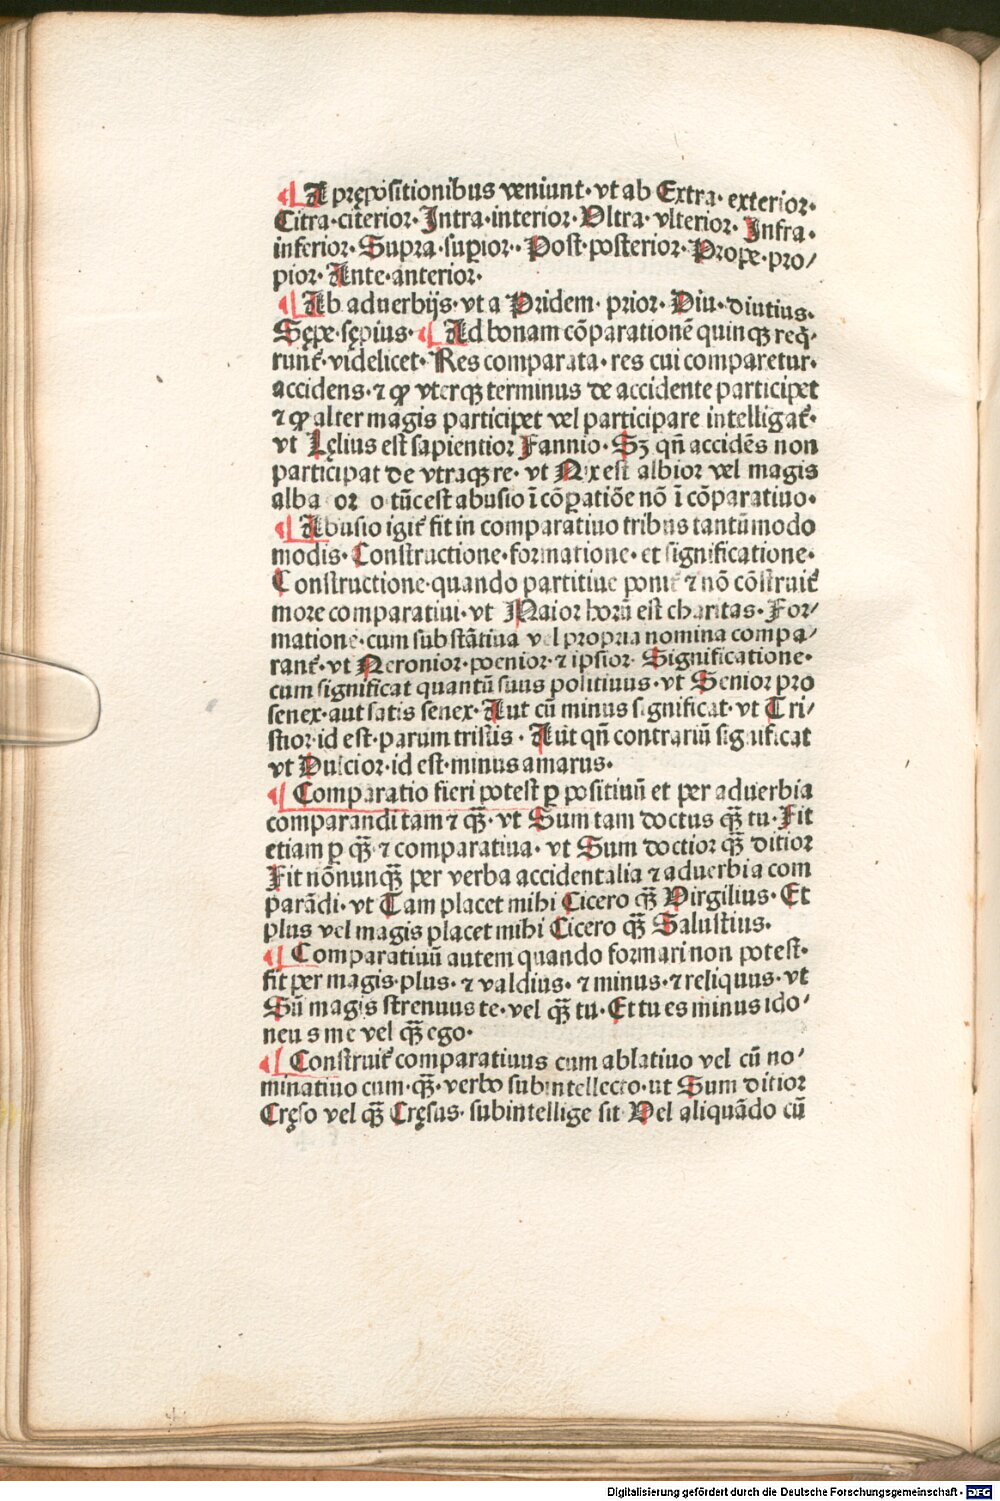 ¶ A prępositionibus veniunt· vt ab Extra· exterior·
Citra·citerior· Intra·interior· Vltra· vlterior· Infra·
inferior· Supra·suꝑior·· Post·posterior· Prope·pro/
pior· Ante·anterior·
¶ Ab aduerbijs·vt a Pridem· prior· Diu·diutius·
Sępe·sępius· ¶ Ad bonam cōparationē quinqꝫ req̄·
runt̄·videlicet· Res comparata·res cui comparetur·
accidens·⁊ ꝙ vterqꝫ terminus de accidente participet
⁊ ꝙ alter magis participet vel participare intelligat̄·
vt Lęlius est sapientior Fannio· Sꝫ qn̄ accidēs non
participat de vtraqꝫ re· vt Nix est albior vel magis
alba or o tūc est abusio ī cōꝑatiōe nō ī cōparatiuo·
¶ Abusio igit̄ fit in comparatiuo tribus tantūmodo
modis· Constructione·formatione·et significatione·
Constructione·quando partitiue ponit̄ ⁊ nō cōstruit̄
more comparatiui·vt Maior horū est charitas· For/
matione·cum substātiua vel propria nomina compa/
rant̄·vt Neronior·poenior·⁊ ipsior· Significatione·
cum significat quantū suus positiuus·vt Senior pro
senex·aut satis senex· Aut cū minus significat·vt Tri/
stior·id est·parum tristis· Aut qn̄ contrariū significat
vt Dulcior·id est·minus amarus·
¶ Comparatio fieri potest ꝑ positiuū et per aduerbia
comparandi tam ⁊ qꝫ̄· vt Sum tam doctus qꝫ̄ tu· Fit
etiam ꝑ qꝫ̄ ⁊ comparatiua· vt Sum doctior qꝫ̄ ditior
Fit nōnunqꝫ̄ per verba accidentalia ⁊ aduerbia com
parādi·vt Tam placet mihi Cicero qꝫ̄ Virgilius· Et
plus vel magis placet mihi Cicero qꝫ̄ Salustius·
¶ Comparatiuū autem quando formari non potest·
fit per magis·plus· ⁊ valdius· ⁊ minus·⁊ reliquus·vt
Sū magis strenuus te·vel qꝫ̄ tu· Et tu es minus ido/
neus me vel qꝫ̄ ego·
¶ Construit̄ comparatiuus cum ablatiuo vel cū no/
minatiuo cum·qꝫ̄·verbo subintellecto·ut Sum ditior
Cręso vel qꝫ̄ Cręsus· subintellige sit Vel aliquādo cū
Digitalisierung gefördert durch die Deutsche Forschungsgemeinschaft - DFG